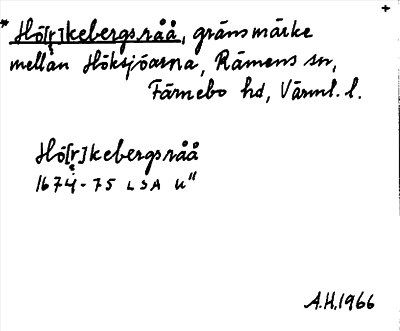 * Hö[r]kebergsråå, gränsmärke
mellan Höksjöarna, Rämens sn,
Färnebo hd, Värml. l.
Hö[r]kebergsråå
1674-75 LSA U"
A.H. 1966